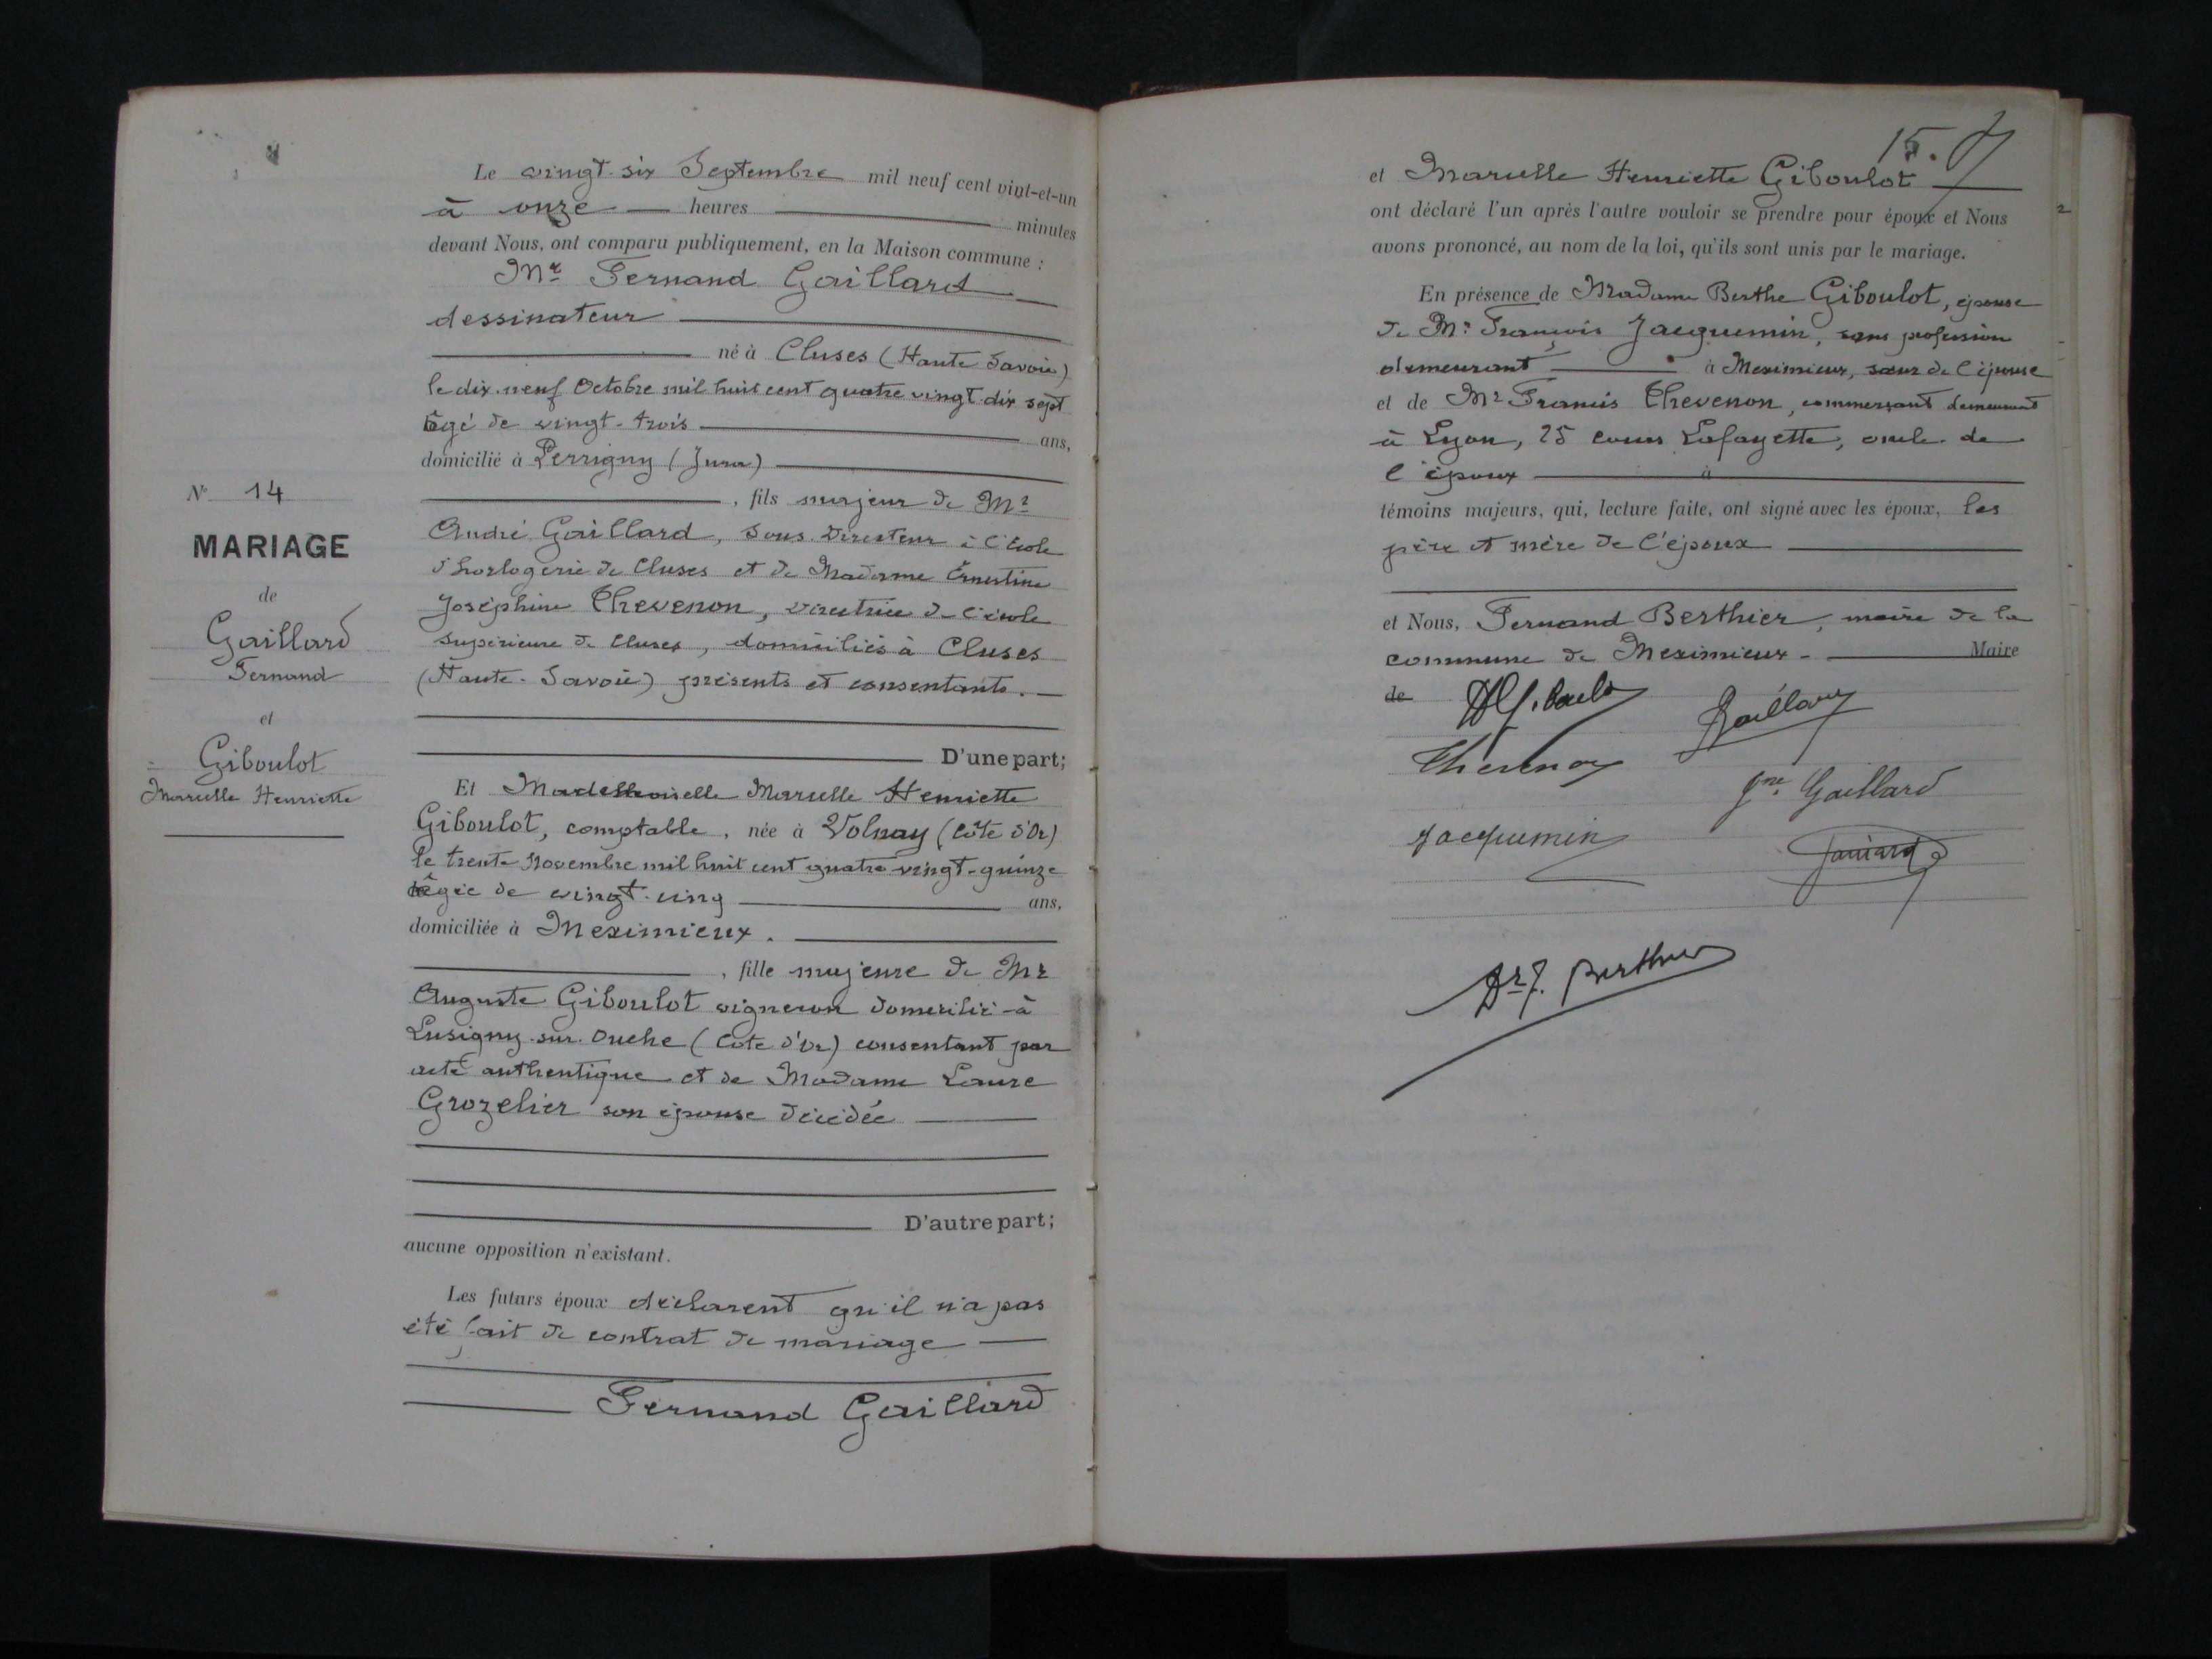 Le vingt-six Septembre mil neuf cent vint-et-un
à onze heures minutes
devant Nous, ont comparu publiquement, en la Maison commune :
Mr Fernand Gaillard
dessinateur
né à Cluses (Haute Savoie)
le dix-neuf Octobre mil huit cent quatre vingt-dix sept
âgé de vingt-trois ans,
domicilié à Perrigny (Jura)
, fils majeur de Mr
André Gaillard, Sous Directeur à l'école
d'horlogerie de Cluses et de Madame Ernestine
Joséphine Thevenon, directrice de l'école
supérieure de Cluses, domiciliés à Cluses
(Haute-Savoie) présents et consentants.
D'une part;
Nº 14
MARIAGE
de
Gaillard
Fernand
et
Giboulot
Marcelle Henriette
Et Mademoiselle Marcelle Henriette
Giboulot, comptable, née à Volnay (Côte d'Or)
le trente Novembre mil huit cent quatre-vingt-quinze
âgée de vingt-cinq ans,
domiciliée à Meximieux.
, fille majeure de Mr
Auguste Giboulot vigneron domicilié à
Lusigny-sur-Ouche (Côte d'Or) consentant par
acte authentique et de Madame Laure
Grozelier son épouse décédée
D'autre part;
aucune opposition n'existant.
Les futurs époux déclarent qu'il n'a pas
été fait de contrat de mariage
Fernand Gaillard
15.
et Marcelle Henriette Giboulot
ont déclaré l'un après l'autre vouloir se prendre pour époux et Nous
avons prononcé, au nom de la loi, qu'ils sont unis par le mariage.
En présence de Madame Berthe Giboulot, épouse
de Mr François Jacquemin, sans profession
demeurant à Meximieux, sœur de l'épouse
et de Mr Francis Thevenon, commerçant demeurant
à Lyon, 25 cours Lafayette, oncle de
l'époux à
témoins majeurs, qui, lecture faite, ont signé avec les époux, les
père et mère de l'époux
et Nous, Fernand Berthier, maire de la
commune de Meximieux - Maire
de
Gaillard
Thevenon
Gaillard
Jacquemin
Dr F. Berthier